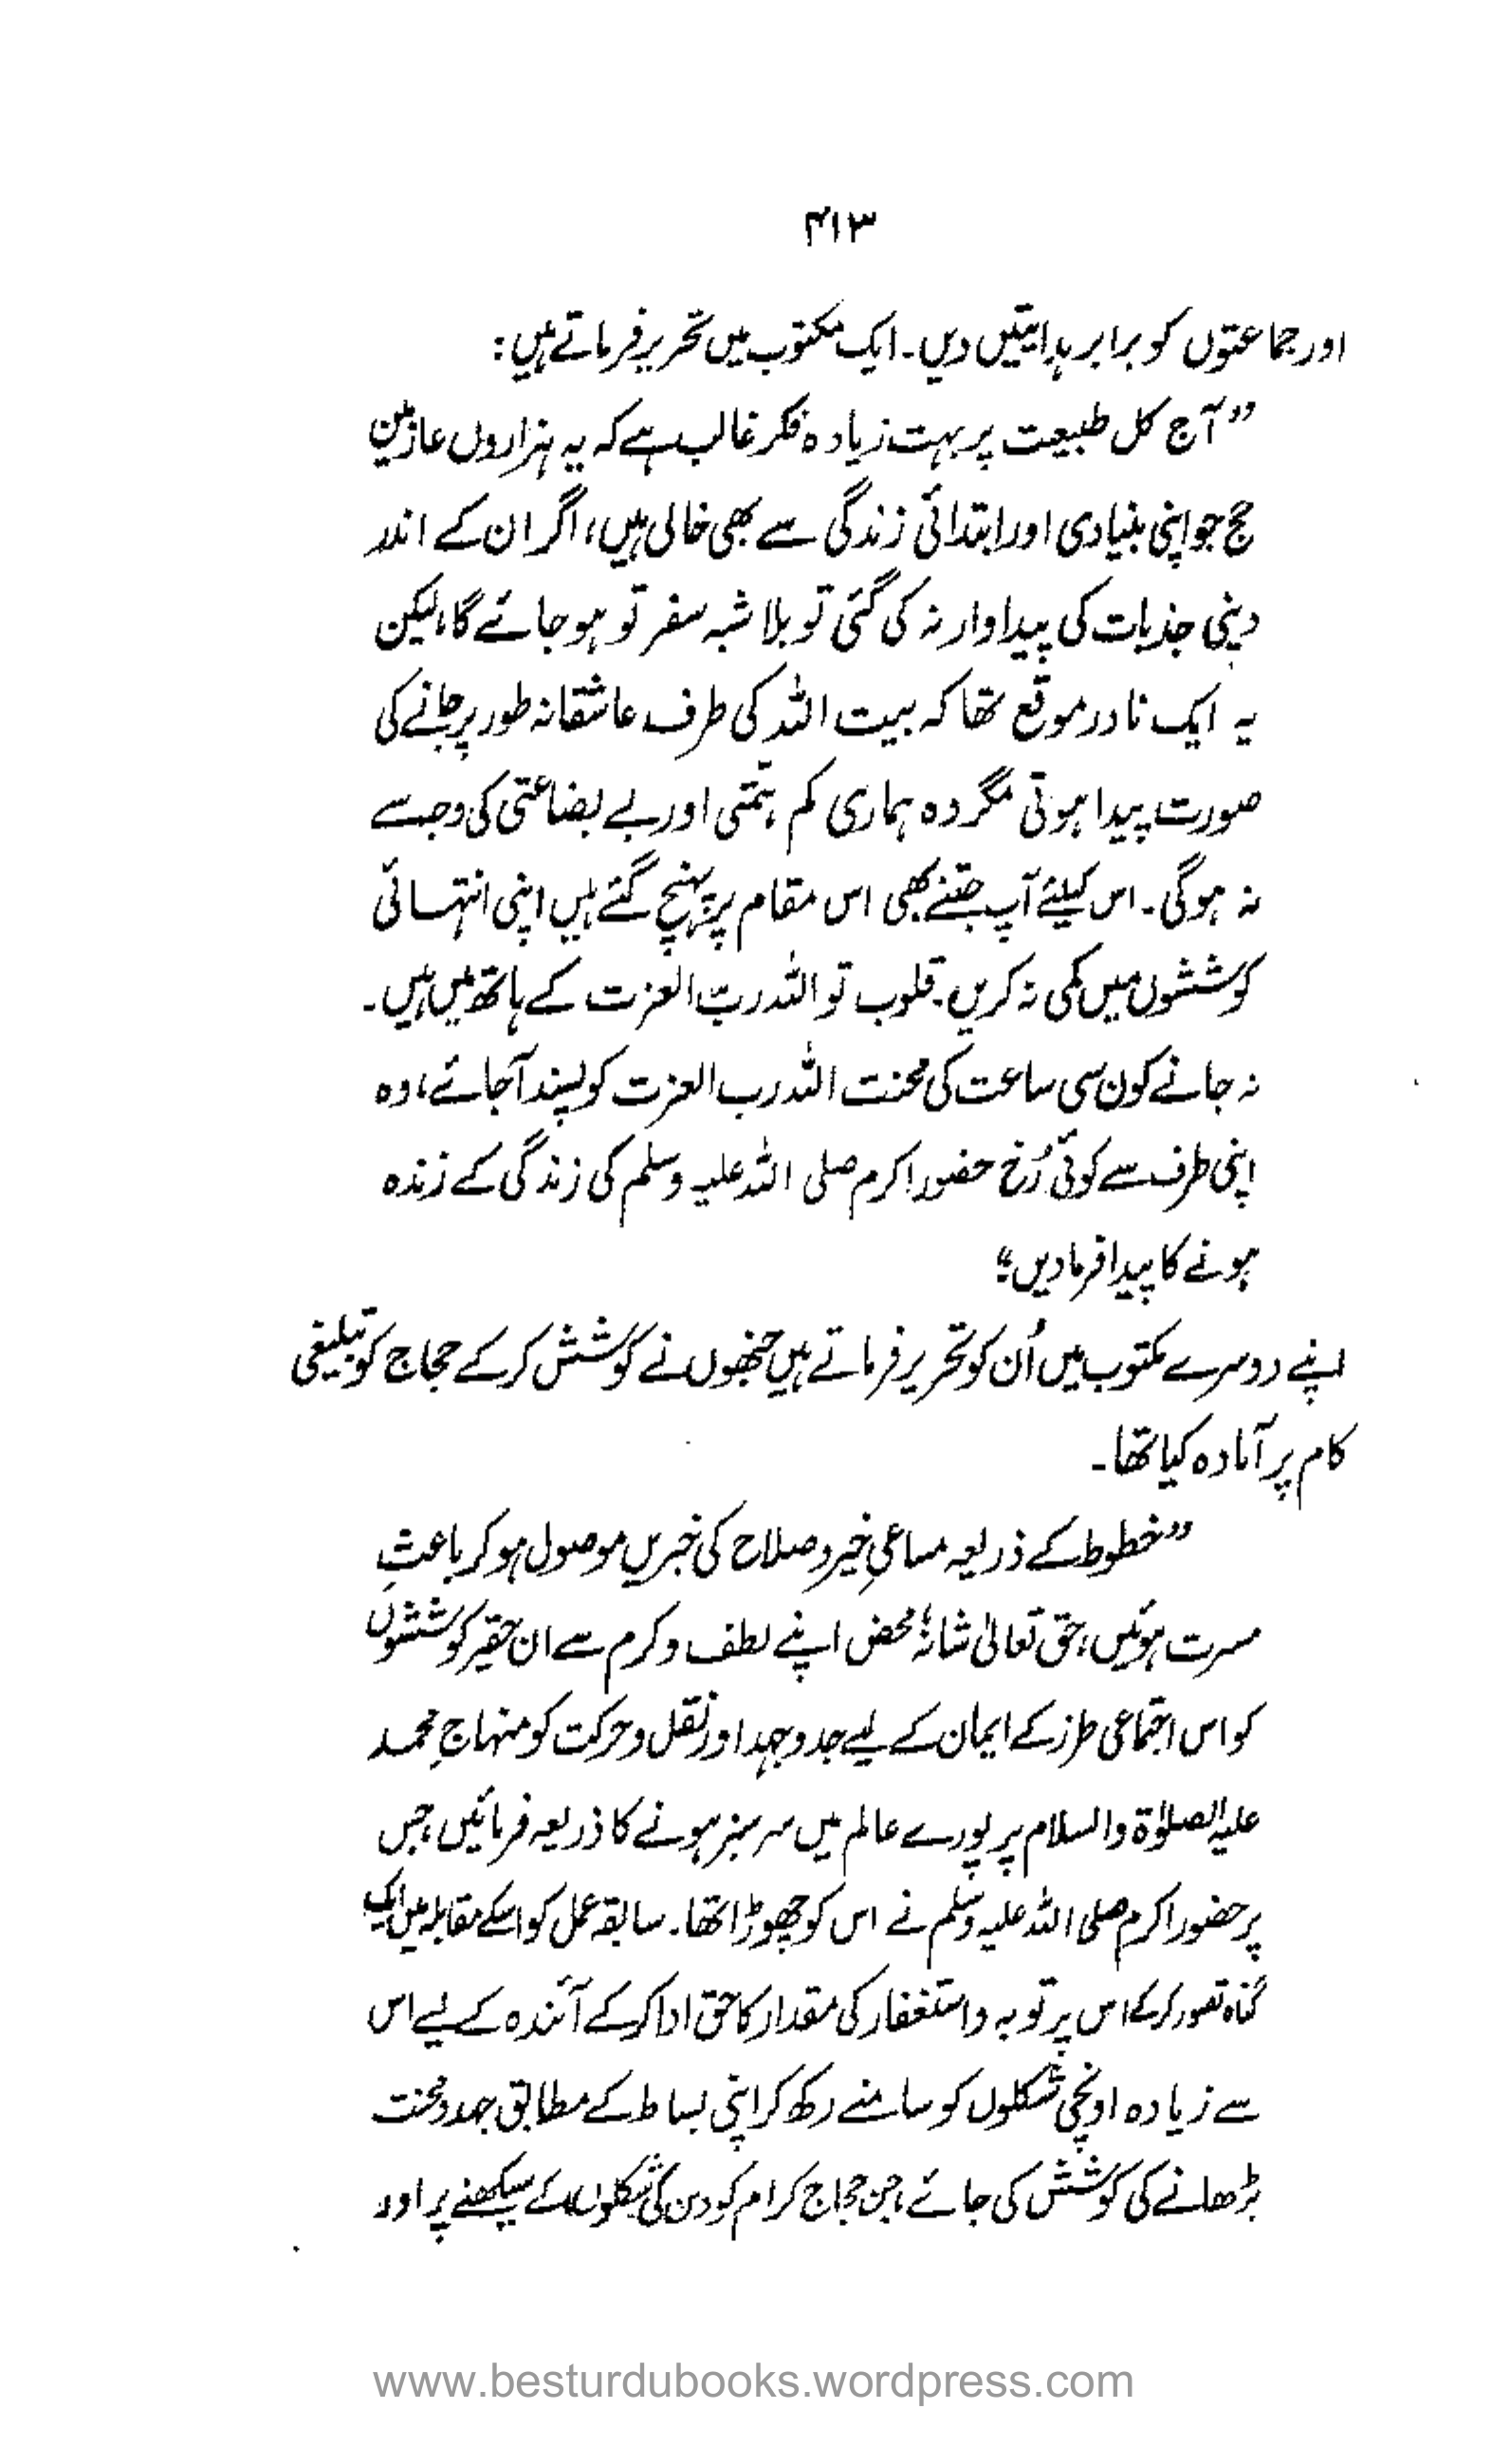 ۴۱۳
اور جماعتوں کو برابر ہدایتیں دیں۔ ایک مکتوب میں تحریر فرماتے ہیں:
”آج کل طبیعت پر بہت زیادہ فکر غالب ہے کہ یہ ہزاروں عازمین
حج جو اپنی بنیادی اور ابتدائی زندگی سے بھی خالی ہیں، اگر ان کے اندر
دینی جذبات کی پیداوار نہ کی گئی تو بلا شبہ سفر تو ہو جائے گا، لیکن
یہ ایک نادر موقع تھا کہ بیت اللہ کی طرف عاشقانہ طور پر جانے کی
صورت پیدا ہوتی مگر وہ ہماری کم ہمتی اور بے بضاعتی کی وجہ سے
نہ ہوگی۔ اس کیلئے آپ جتنے بھی اس مقام پر پہنچ گئے ہیں اپنی انتہائی
کوششوں میں کمی نہ کریں۔ قلوب تو اللہ ربّ العزت کے ہاتھ میں ہیں۔
نہ جانے کون سی ساعت کی محنت اللہ رب العزت کو پسند آجائے، وہ
اپنی طرف سے کوئی رُخ حضور اکرم صلی اللہ علیہ وسلم کی زندگی کے زندہ
ہونے کا پیدا فرما دیں“
اپنے دوسرے مکتوب میں اُن کو تحریر فرماتے ہیں جنھوں نے کوشش کرکے حجاج کو تبلیغی
کام پر آمادہ کیا تھا۔
”خطوط کے ذریعہ مساعیِ خیر و صلاح کی خبریں موصول ہو کر باعثِ
مسرت ہوئیں، حق تعالیٰ شانہٗ محض اپنے لطف و کرم سے ان حقیر کوششوں
کو اس اجتماعی طرز کے ایمان کے لیے جد و جہد اور نقل و حرکت کو منہاجِ محمد
علیہ الصلوٰۃ والسلام پر پورے عالم میں سرسبز ہونے کا ذریعہ فرمائیں، جس
پر حضور اکرم صلی اللہ علیہ وسلم نے اس کو چھوڑا تھا۔ سابقہ عمل کو اسکے مقابلہ میں ایک
گناہ تصور کرکے اس پر توبہ و استغفار کی مقدار کا حق ادا کرکے آئندہ کے لیے اس
سے زیادہ اونچی شکلوں کو سامنے رکھ کر اپنی بساط کے مطابق جہد و محنت
بڑھانے کی کوشش کی جائے، جن حجاج کرام کو دن کی شکلوں کے سیکھنے پر اور
www.besturdubooks.wordpress.com